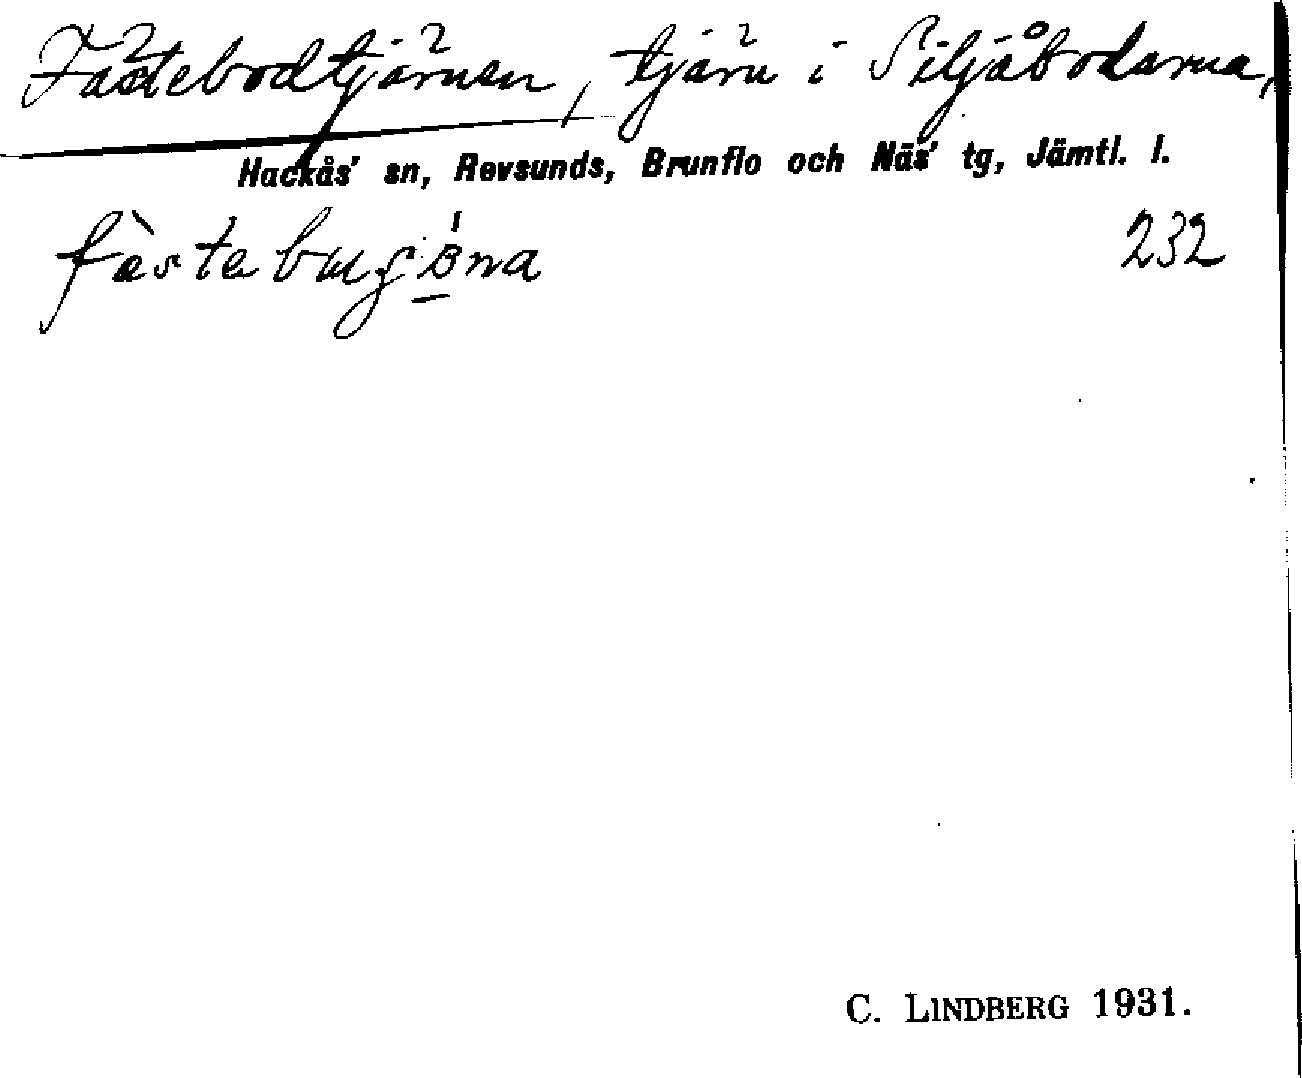 Fästebodtjärnen, tjärn i Siljåbodarna,
Hackås' sn, Revsunds, Brunflo och Näs' tg, Jämtl. l.
232
C. LINDBERG 1931.